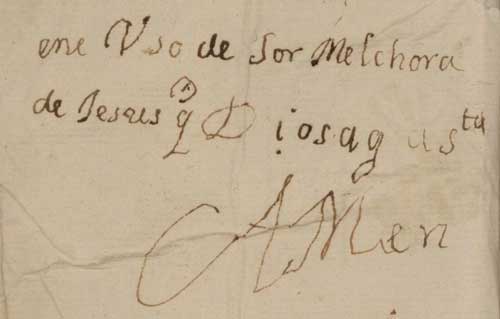 ene Uso de Sor Melchora
de Jesus q Dios aga s^ta
AMen